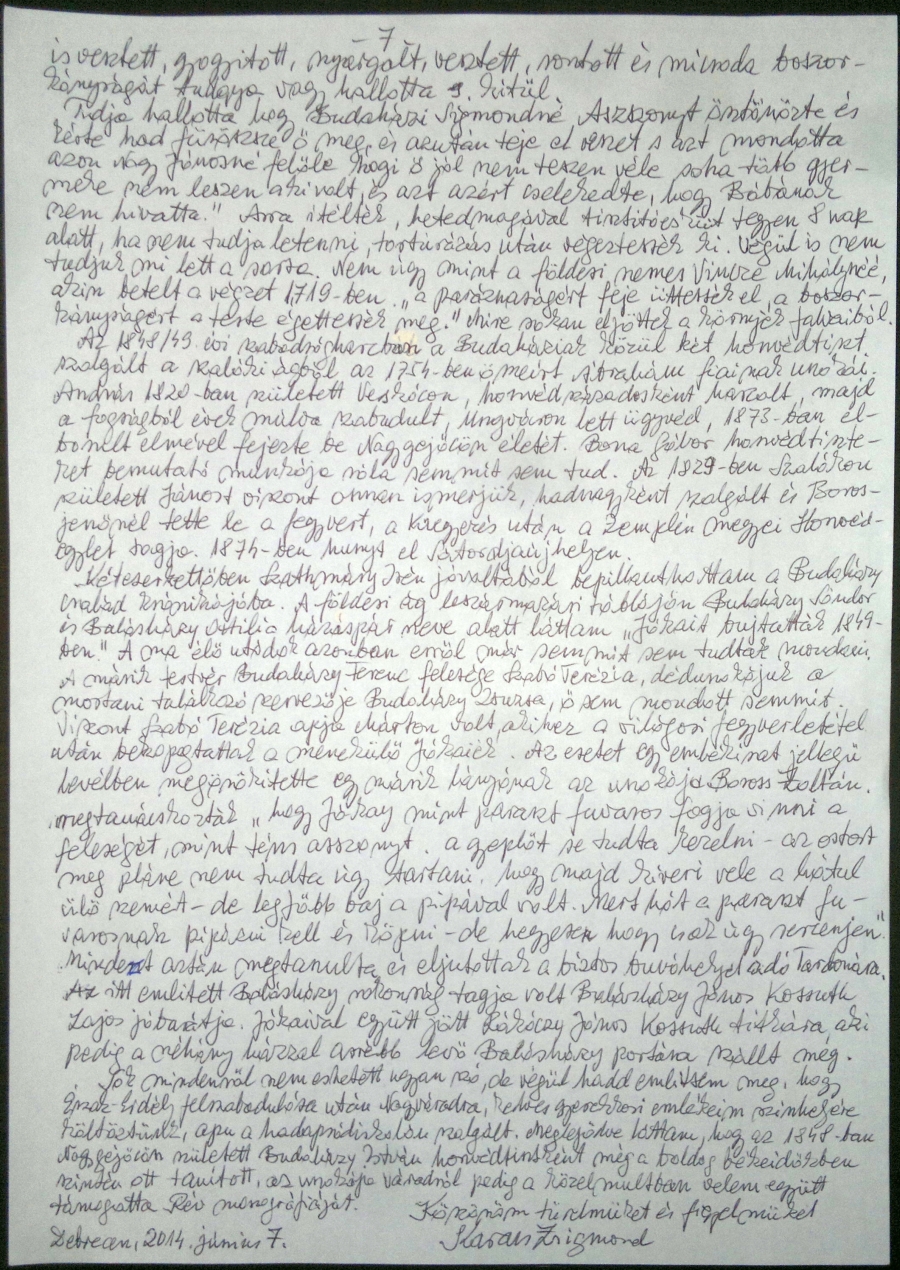 - 7
is vesztett, gyogyitott, nyargalt, vesztett, rontott és micsoda boszor-
kányságát tudgya vagy hallotta s. kitül.
Tudja hallotta hogy Budaházi Sigmondné Aszszonyt öntönözte és
kérte had fürössze ő meg, és azután teje el veszet s azt mondotta
azon Nagy Jánosné felőle hogi ő jól nem teszen véle soha több gyer-
meke nem leszen a ki volt, és azt azért cselekedte, hogy Bábának
nem hivatta." Arra itélték, hetedmagával tisztitóesküt tegyen 8 nap
alatt, ha nem tudja letenni, torturázás után végeztessék ki. Végül is nem
tudjuk mi lett a sorsa. Nem úgy mint a földesi nemes Vincze Mihálynéé,
akin betelt a végzet 1719-ben. „a paráznaságért feje üttessék el, a boszor-
kányságért a teste égettessék meg." Mire sokan eljöttek a környék falvaiból.
Az 1848/49. évi szabadságharcban a Budaháziak közül két honvédtiszt
szolgált a szalóki ágból az 1754-ben ismert Ábrahám fiainak unokái.
András 1820-ban született Veskócon, honvéd századosként harcolt, majd
a fogságból évek múlva szabadult, Ungváron lett ügyvéd, 1873-ban el-
borult elmével fejezte be Nagygejőcön életét. Bona Gábor honvédtiszte-
ket bemutató munkája róla semmit sem tud. Az 1829-ben Szalókon
született Jánost viszont onnan ismerjük, hadnagyként szolgált és Boros-
jenőnél tette le a fegyvert, a kiegyezés után a Zemplén megyei Honvéd-
egylet tagja. 1874-ben hunyt el Sátoraljaújhelyen.
Kéteserkettőben Szathmáry Irén jóvoltából bepillanthattam a Budaházy
család krónikájába. A földesi ág leszármazási tábláján Budaházy Sándor
és Balásházy Ottilia házaspár neve alatt láttam „Jókait bujtatták 1849-
ben." A ma élő utódok azonban erről már semmit sem tudtak mondani.
A másik testvér Budaházy Ferenc felesége Szabó Terézia, dédunokájuk a
mostani találkozó szervezője Budaházy Zsuzsa, ő sem mondott semmit.
Viszont Szabó Terézia apja Márton volt, akihez a világosi fegyverletétel
után bekopogtattak a menekülő Jókaiék. Az esetet egy emlékirat jellegű
levélben megörökitette egy másik lányának az unokája Boross Zoltán.
megtanácskozták „hogy Jókay mint paraszt fuvaros fogja vinni a
feleségét, mint téns asszonyt. a gyeplőt se tudta kezelni – az ostort
meg pláne nem tudta úgy tartani, hogy majd kiveri vele a hátul
ülő szemét – de legfőbb baj a pipával volt. Mert hát a paraszt fu-
varosnak pipázni kell és köpni – de hegyesen hogy csak úgy sercenjen."
Mindezt aztán megtanulta és eljutottak a biztos búvóhelyet adó Tardonára.
Az itt emlitett Balásházy rokonság tagja volt Balásházy János Kossuth
Lajos jóbarátja. Jókaival együtt jött Rákóczy János Kossuth titkára, aki
pedig a néhány házzal arrébb levő Balásházy portára szállt meg.
Sok mindenről nem eshetett ugyan szó, de végül hadd emlitsem meg, hogy
Észak-Erdély felszabadulása után Nagyváradra, kedves gyerekkori emlékeim szinhelyére
költöztünk, apu a hadapródiskolán szolgált. Meglepődve láttam, hogy az 1848-ban
Nagygejőcön született Budaházy István honvédtisztként még a boldog békeidőkben
szintén ott tanitott, az unokája Váradról pedig a közelmultban velem együtt
támogatta Rév monográfiáját.
Köszönöm türelmüket és figyelmüket
Debrecen, 2014. június 7.
Karacs Zsigmond